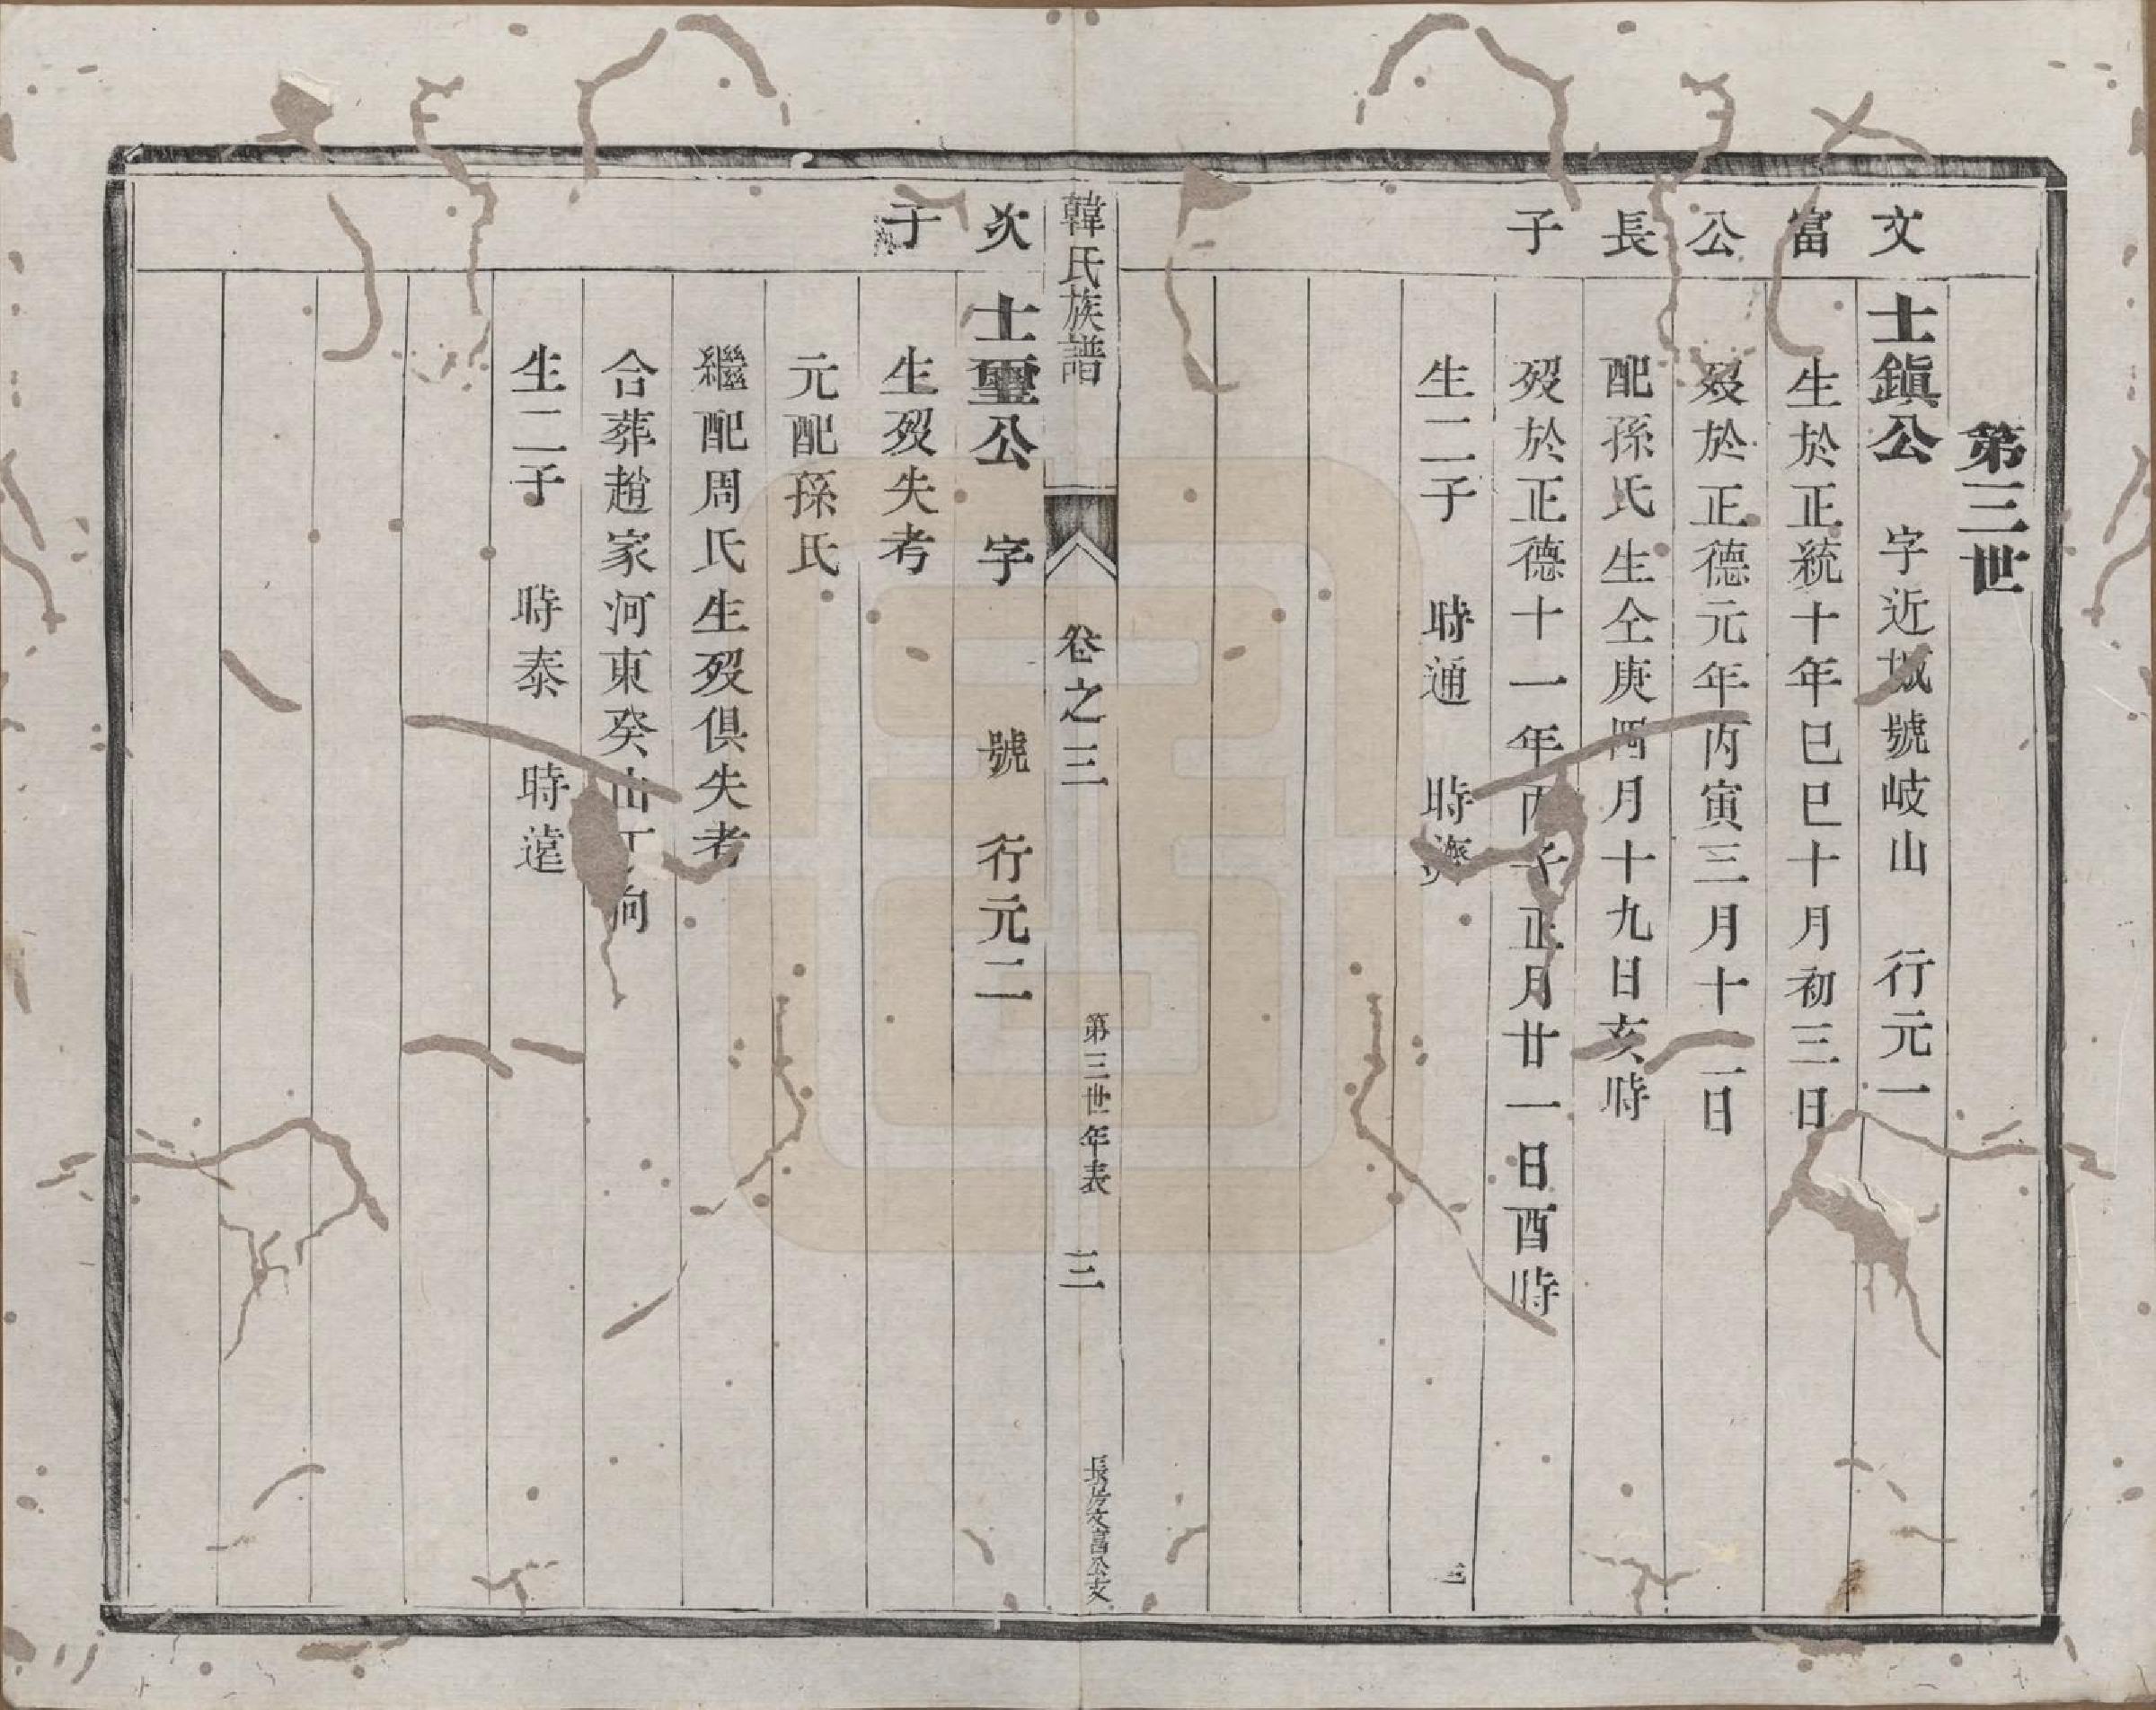 第三世
文富公長子
士鎭公 字近城號岐山 行元一
生於正統十年巳巳十月初三日
歿於正德元年丙寅三月十二日
配孫氏生仝庚四月十九日亥時
歿於正德十一年丙子正月廿一日酉時
生二子 時通 時
三
韓氏族譜 卷之三 第三世年表 三 長房文富公支
次子
士璽公 字 號 行元二
生歿失考
元配孫氏
繼配周氏生歿俱失考
合葬趙家河東癸山丁向
生二子 時泰 時遠